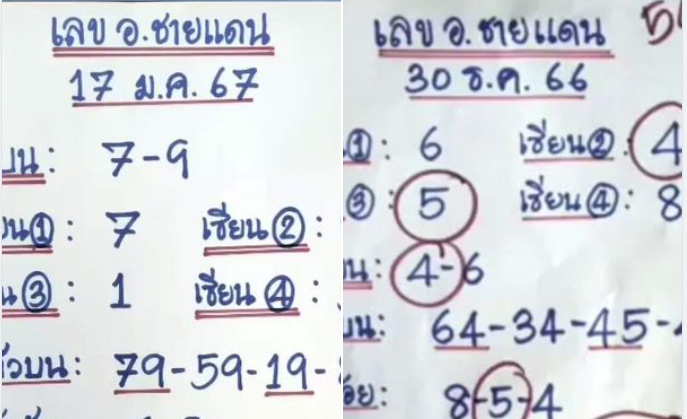 เลข อ.ชายแดน
17 ม.ค. 67
บน: 7-9
น①: 7 เซียน②:
น③: 1 เซียน④:
ัวบน: 79-59-19-
เลข อ.ชายแดน
30 ธ.ค. 66
①: 6 เซียน②: 4
③: 5 เซียน④: 8
น: 4-6
บน: 64-34-45-
อย: 8-5-4